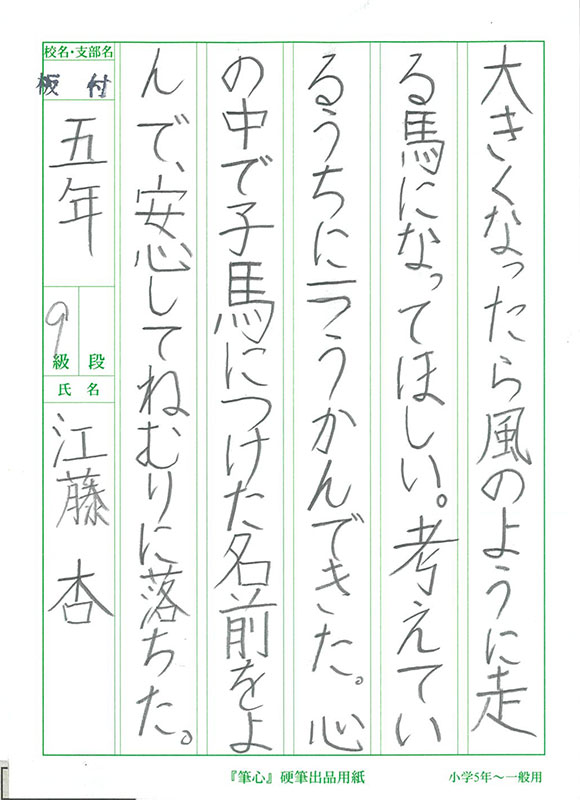 大きくなったら風のように走
る馬になってほしい。考えてい
るうちに一つうかんできた。心
の中で子馬につけた名前をよ
んで、安心してねむりに落ちた。
校名・支部名
板付
五年
9
級 段
氏名
江藤 杏
『筆心』硬筆出品用紙
小学5年〜一般用